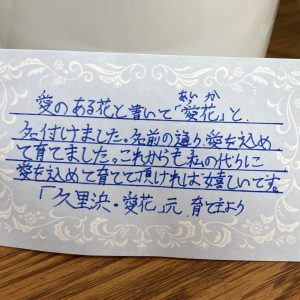 愛のある花と書いて「愛花」と、
あい か
名付けました。名前の通り、愛を込め
て育てました。これからも私の代りに
愛を込めて育てて頂ければ嬉しいです。
「久里浜・愛花」元 育て主より